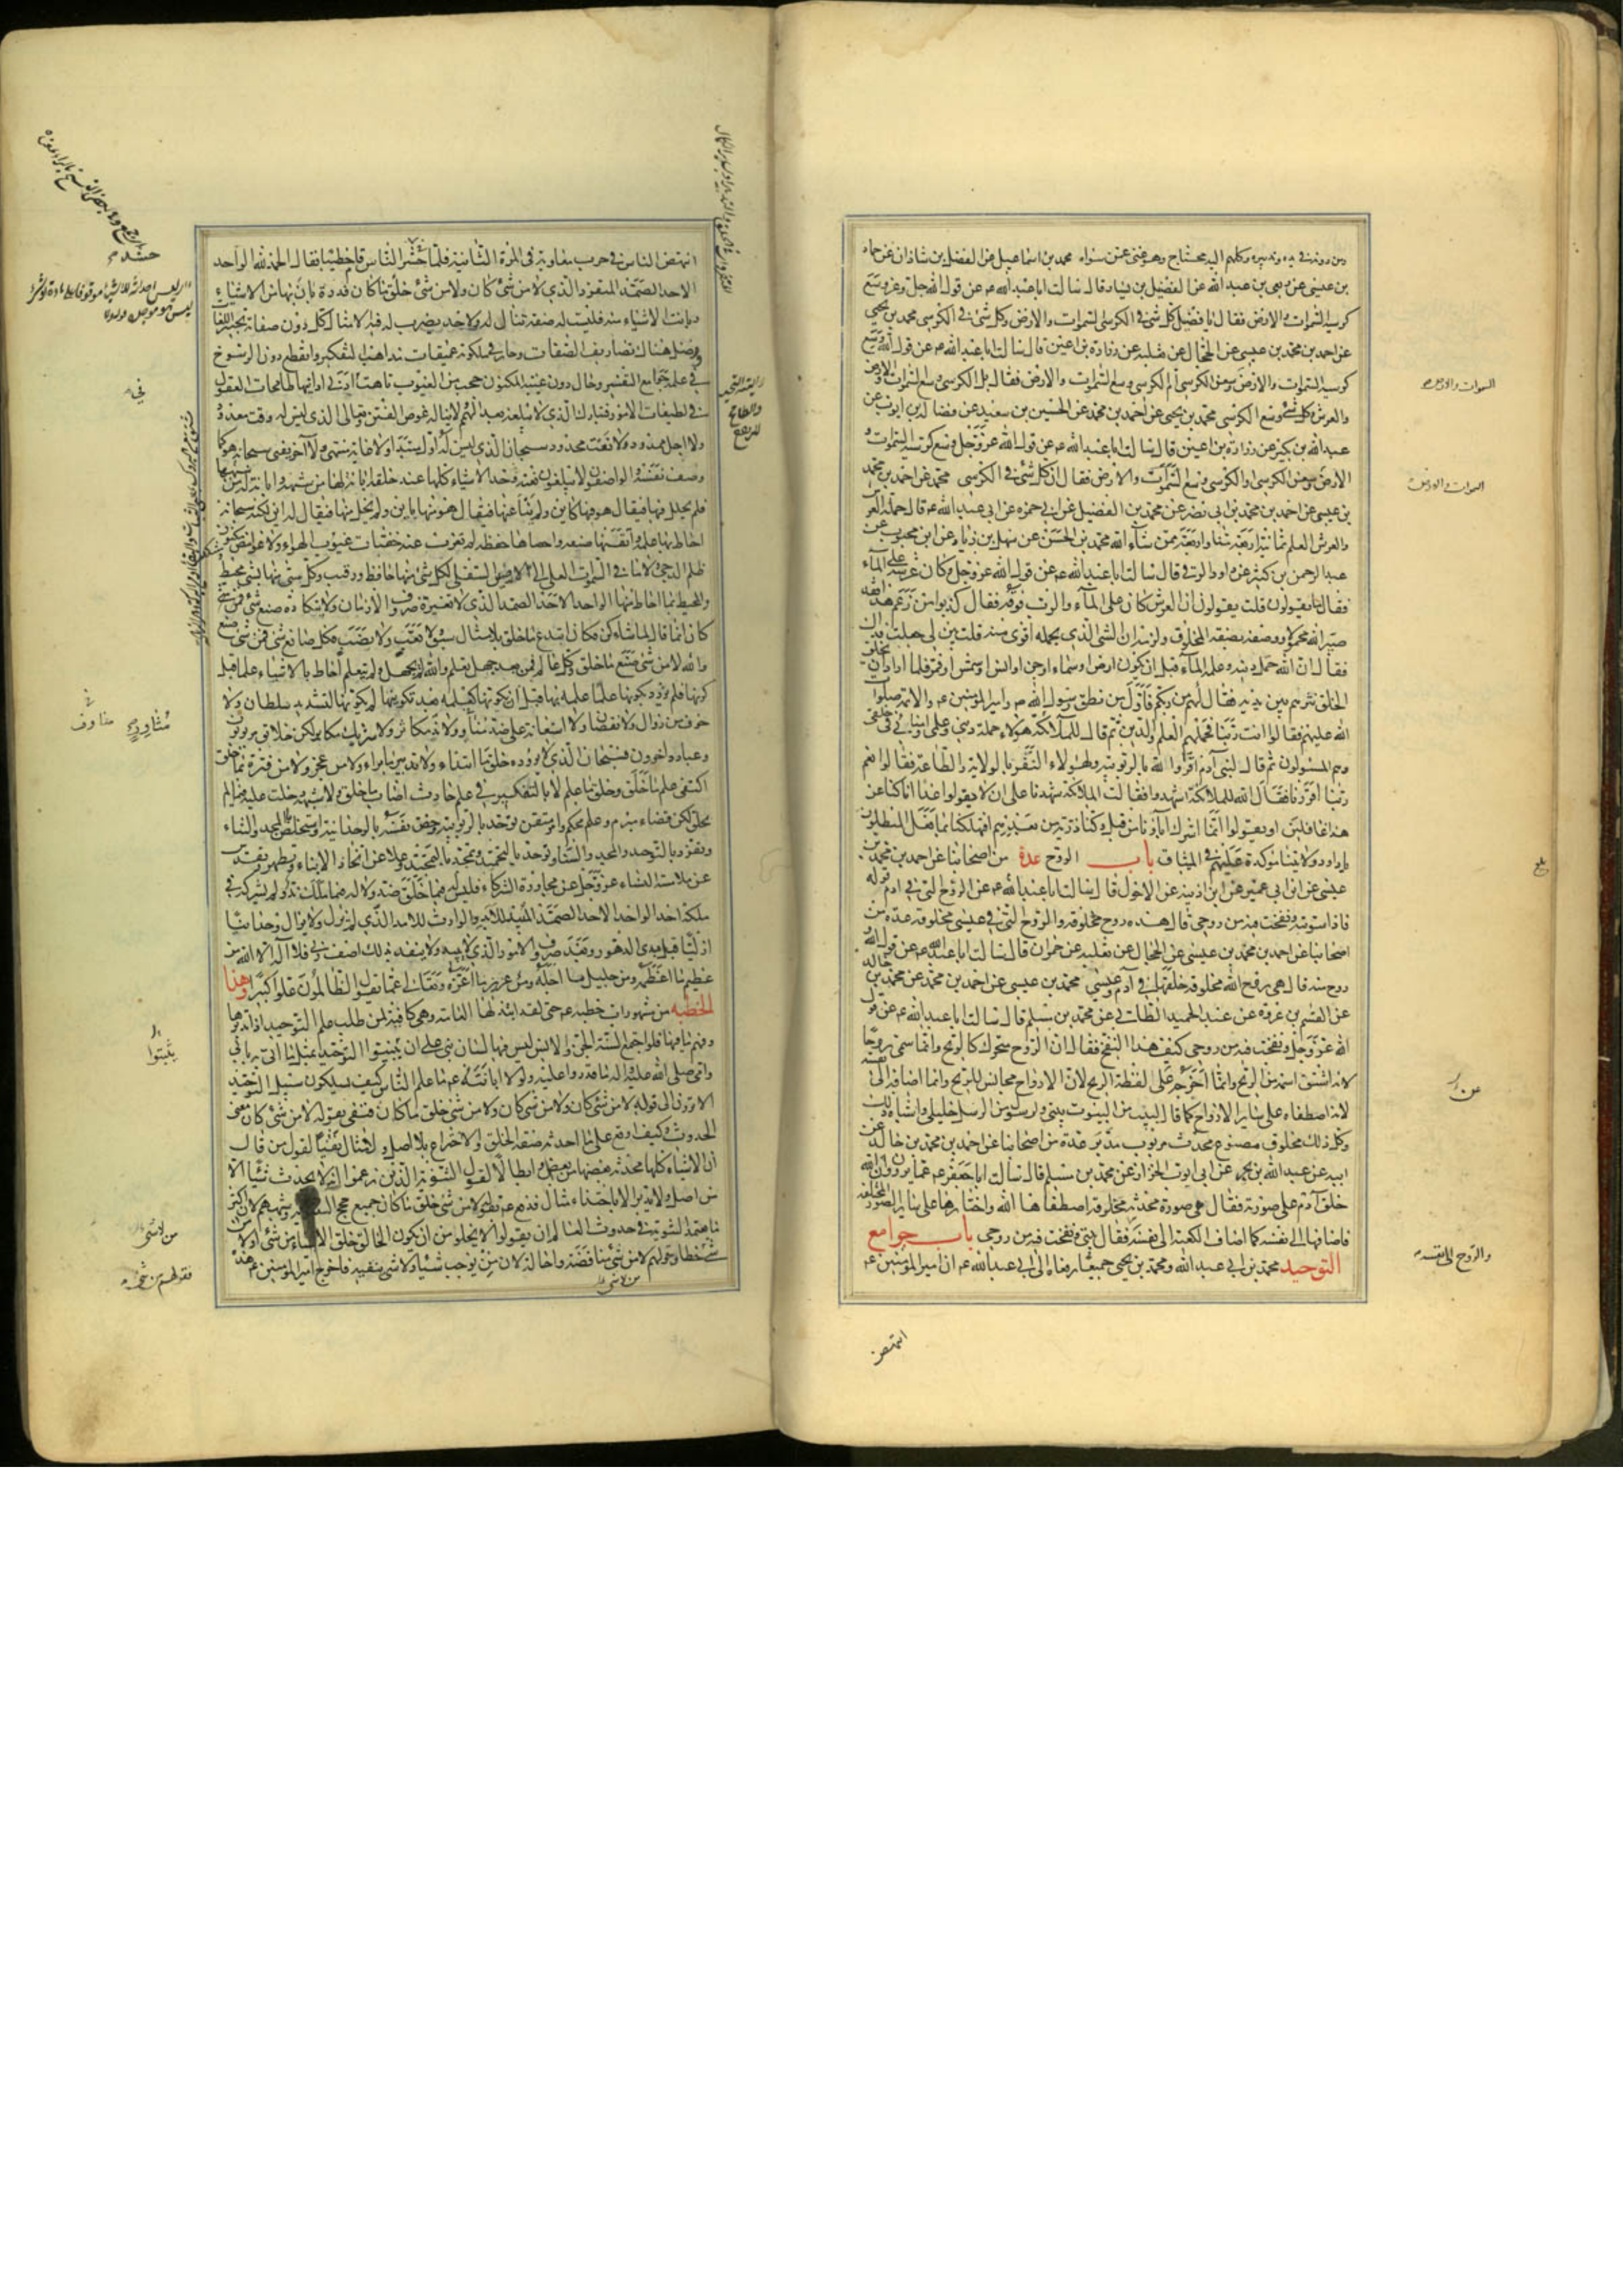 بن عيسى عن ربعي بن عبد الله عن الفضيل بن يسار قال سالت ابا عبد الله ع عن قول الله جل وعز وسع
كرسيه السموات والارض فقال يا فضيل كل شئ في الكرسى السموات والارض وكل شئ في الكرسى محمد بن يحيى
عن احمد بن محمد بن عيسى عن الحجال عن ثعلبه عن زرارة بن اعين قال سالت ابا عبد الله ع عن قول الله وسع
كرسيه السموات والارض وسعن الكرسى أم الكرسى وسع السموات والارض فقال بل الكرسى وسع السموات والارض
والعرش وكل شئ وسع الكرسى محمد بن يحيى عن احمد بن محمد عن الحسين بن سعيد عن فضاله بن ايوب عن
عبد الله بن بكير عن زرارة بن اعين قال سالت ابا عبد الله ع عن قول الله عز وجل وسع كرسيه السموات و
الارض وسعن الكرسى او الكرسى وسع السموات والارض فقال ان كل شئ في الكرسى محمد عن احمد بن محمد
بن عيسى عن احمد بن محمد بن ابى نصر عن محمد بن الفضيل عن ابى حمزه عن ابى عبد الله ع قال حملة العرش
والعرش العلم ثمانية اربعة منا واربعة ممن شاء الله محمد بن الحسن عن سهل بن زياد عن ابن محبوب عن
عبد الرحمن بن كثير عن داود الرقى قال سالت ابا عبد الله ع عن قول الله عز وجل وكان عرشه على الماء
فقال ما يقولون قلت يقولون ان العرش كان على الماء والرب فوقه فقال كذبوا من زعم هذا فقد
صير الله محمولا ووصفه بصفة المخلوق ولزمه ان الشئ الذى يحمله اقوى منه قلت بين لى جعلت فداك
فقال ان الله حمل دينه وعلمه الماء قبل ان يكون ارض او سماء او جن او انس او شمس او قمر فلما اراد ان يخلق
الخلق نثرهم بين يديه فقال لهم من ربكم فاول من نطق رسول الله ص وامير المؤمنين ع والائمة صلوات
الله عليهم فقالوا انت ربنا فحملهم العلم والدين ثم قال للملائكة هؤلاء حملة دينى وعلمى وامنائى في خلقى
وهم المسئولون ثم قال لبنى آدم اقروا لله بالربوبيه ولهؤلاء النفر بالولاية والطاعة فقالوا نعم
ربنا اقررنا فقال الله للملائكة اشهدوا فقالت الملائكة شهدنا على ان لا يقولوا غدا انا كنا عن
هذا غافلين او يقولوا انما اشرك آباؤنا من قبل وكنا ذرية من بعدهم افتهلكنا بما فعل المبطلون
يا داود ولايتنا مؤكدة عليهم في الميثاق باب الروح عدة من اصحابنا عن احمد بن محمد بن
عيسى عن ابن ابى عمير عن ابن اذينه عن الاحول قال سالت ابا عبد الله ع عن الروح التى في ادم قوله
فاذا سويته ونفخت فيه من روحى قال هذه روح مخلوقه والروح التى في عيسى مخلوقه عدة من
اصحابنا عن احمد بن محمد بن عيسى عن الحجال عن ثعلبه عن حمران قال سالت ابا عبد الله ع عن قول الله و
روح منه قال هى روح الله مخلوقه خلقها الله في آدم وعيسى محمد بن عيسى عن احمد بن محمد عن محمد بن خالد
عن القسم بن عروة عن عبد الحميد الطائى عن محمد بن مسلم قال سالت ابا عبد الله ع عن قول
الله عز وجل ونفخت فيه من روحى كيف هذا النفخ فقال ان الروح متحرك كالريح وانما سمى روحا
لانه اشتق اسمه من الريح وانما اخرجه على لفظة الريح لان الارواح مجانس للريح وانما اضافه الى نفسه
لانه اصطفاه على ساير الارواح كما قال لبيت من البيوت بيتى ولرسول من الرسل خليلى واشباه ذلك
وكل ذلك مخلوق مصنوع محدث مربوب مدبر عدة من اصحابنا عن احمد بن محمد بن خالد عن
ابيه عن عبد الله بن بحر عن ابى ايوب الخزاز عن محمد بن مسلم قال سالت ابا جعفر ع عما يروون ان الله
خلق آدم على صورته فقال هى صورة محدثة مخلوقه اصطفاها الله واختارها على ساير الصور المختلفه
فاضافها الى نفسه كما اضاف الكعبه الى نفسه فقال بيتى ونفخت فيه من روحى باب جوامع
التوحيد محمد بن ابى عبد الله ومحمد بن يحيى جميعا رفعاه الى ابى عبد الله ع ان امير المؤمنين ع
السموات والارض
السموات والارض
عن
والروح الى نفسه
استنهض
استنهض الناس في حرب معاوية في المرة الثانية فلما حشر الناس قام خطيبا فقال الحمد لله الواحد
الاحد الصمد المتفرد الذى لا من شئ كان ولا من شئ خلق ما كان قدرة بان بها من الاشياء
وبانت الاشياء منه فليست له صفة تنال ولا حد يضرب له فيه الامثال كل دون صفاته تحبير اللغات
وضل هناك تصاريف الصفات وحار في ملكوته عميقات مذاهب التفكير وانقطع دون الرسوخ
في علمه جوامع التفسير وحال دون غيبه المكنون حجب من الغيوب تاهت في ادنى ادانيها طامحات العقول
في لطيفات الامور فتبارك الذى لا يبلغه بعد الهمم ولا يناله غوص الفتن وتعالى الذى ليس له وقت معدود
ولا اجل ممدود ولا نعت محدود سبحان الذى ليس له اول مبتدا ولا غاية منتهى ولا آخر يفنى سبحانه هو كما
وصف نفسه والواصفون لا يبلغون نعته وحد الاشياء كلها عند خلقه ابانة لها من شبهه وابانة له من شبهها
فلم يحلل فيها فيقال هو فيها كائن ولم ينأ عنها فيقال هو منها باين ولم يخل منها فيقال له اين لكنه سبحانه
احاط بها علمه واتقنها صنعه واحصاها حفظه لم يعزب عنه خفيات غيوب الهواء ولا غوامض مكنون
ظلم الدجى ولا ما في السموات العلى الى الارض السفلى لكل شئ منها حافظ ورقيب وكل شئ منها بشئ محيط
والمحيط بما احاط منها الواحد الاحد الصمد الذى لا تغيره صروف الازمان ولا يتكاده صنع شئ
كان انما قال لما شاء كن فكان ابتدع ما خلق بلا مثال سبق ولا تعب ولا نصب وكل صانع شئ فمن شئ صنع
والله لا من شئ صنع ما خلق وكل عالم فمن بعد جهل تعلم والله لم يجهل ولم يتعلم احاط بالاشياء علما قبل
كونها فلم يزدد بكونها علما علمه بها قبل ان يكونها كعلمه بعد تكوينها لم يكونها لتشديد سلطان ولا
خوف من زوال ولا نقصان ولا استعانة على ضد مناو ولا ند مكاثر ولا شريك مكابر لكن خلائق مربوبون
وعباد داخرون فسبحان الذى لا يؤده خلق ما ابتداء ولا تدبير ما براء ولا من عجز ولا من فترة بما خلق
اكتفى علم ما خلق وخلق ما علم لا بالتفكير في علم حادث اصاب ما خلق ولا شبهة دخلت عليه فيما لم
يخلق لكن قضاء مبرم وعلم محكم وامر متقن توحد بالربوبية وخص نفسه بالوحدانية واستخلص المجد والثناء
وتفرد بالتوحيد والمجد والسناء وتوحد بالتحميد وتمجد بالتمجيد وعلا عن اتخاذ الابناء وتطهر وتقدس
عن ملامسة النساء عز وجل عن مجاورة الشركاء فليس له فيما خلق ضد ولا له فيما ملك ند ولم يشركه في
ملكه احد الواحد الاحد الصمد المبيد للابد والوارث للامد الذى لم يزل ولا يزال وحدانيا
ازليا قبل بدى الدهور وبعد صروف الامور الذى لا يبيد ولا ينفد بذلك اصف ربى فلا آله الا الله من
عظيم ما اعظمه ومن جليل ما اجله ومن عزيز ما اعزه وتعالى عما يقول الظالمون علوا كبيرا وهذا
الخطبه من مشهورات خطبه ع حتى لقد ابتذلها العامه وهى كافية لمن طلب علم التوحيد اذا تدبرها
وفهم ما فيها فلو اجتمع السنة الجن والانس ليس فيها لسان نبى على ان يبينوا التوحيد بمثل ما اتى به بابى
وامى صلى الله عليه واله ما قدروا عليه ولولا ابانته ع ما علم الناس كيف يسلكون سبيل التوحيد
الا ترون الى قوله لا من شئ كان ولا من شئ خلق ما كان فنفى بقوله لا من شئ كان معنى
الحدوث وكيف اوقع على ما احدثه صفة الخلق والاختراع بلا اصل ولا مثال نفيا لقول من قال
ان الاشياء كلها محدثة بعضها من بعض وابطالا لقول الثنوية الذين زعموا انه لا يحدث شيئا الا
من اصل ولا يدبر الا باحتذاء مثال فدفع ع بقوله لا من شئ خلق ما كان جميع حجج الثنوية وشبههم لان اكثر
ما يعتمد الثنوية في حدوث العالم ان يقولوا لا يخلو من ان يكون الخالق خلق الاشياء من شئ او لا من
شئ خطا وقولهم لا من شئ مناقضة واحالة لان من يوجب شيئا ولا شئ ينفيه فاخرج امير المؤمنين ع هذه
من لا شئ
حشد
في
مناوٍ
يثبتوا
من لا شئ
فقولهم من شئ